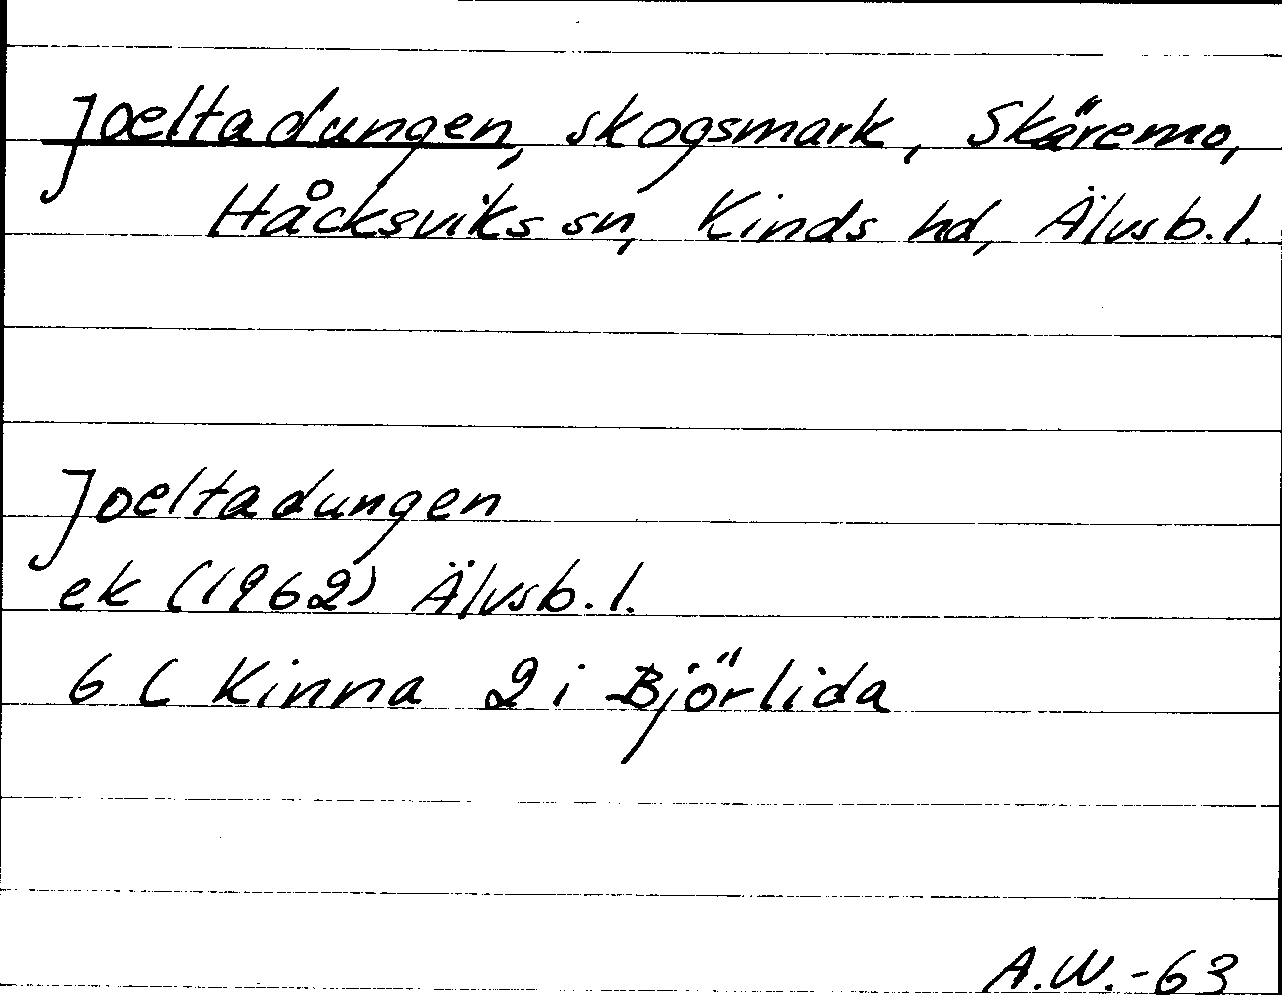 Joeltadungen, skogsmark, Skäremo,
Håcksviks sn, Kinds hd, Älvsb.l.
Joeltadungen
ek (1962) Älvsb.l.
6 C Kinna 2 i Björlida
A.W.-63